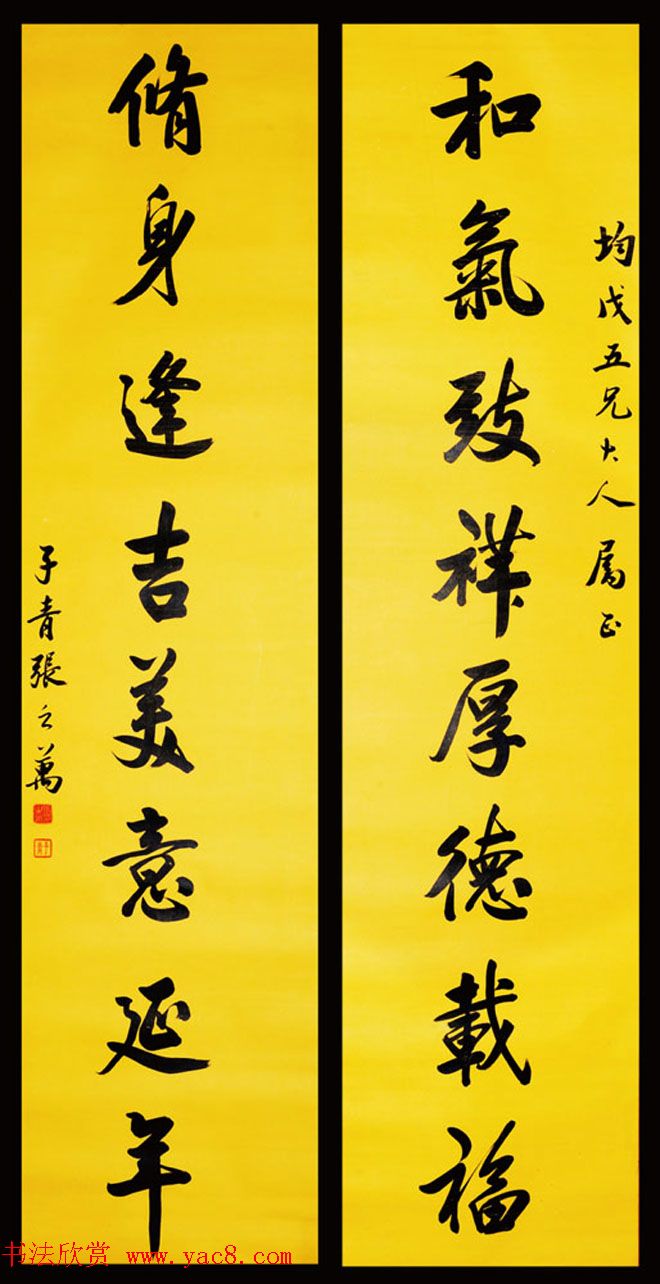 均戊五兄大人属正
和氣致祥厚德載福
脩身逢吉美意延年
子青張之萬
书法欣赏 www.yac8.com